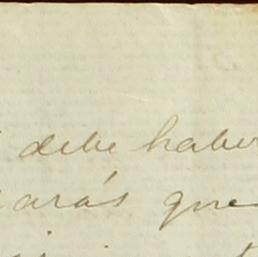 debe haber
arás que